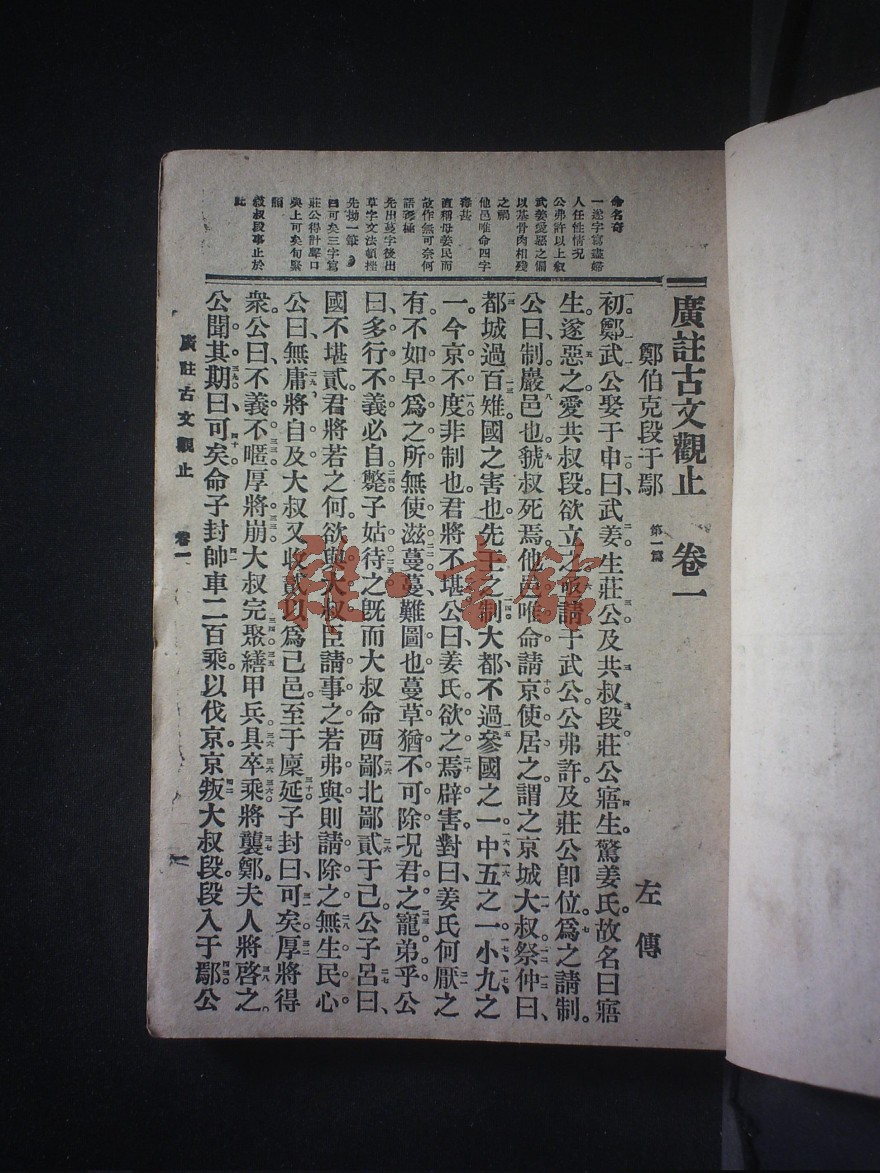 廣註古文觀止 卷一
鄭伯克段于鄢 第一篇 左傳
初鄭武公娶于申曰武姜生莊公及共叔段莊公寤生驚姜氏故名曰寤
生遂惡之愛共叔段欲立之亟請于武公公弗許及莊公卽位爲之請制
公曰制巖邑也虢叔死焉他邑唯命請京使居之謂之京城大叔祭仲曰
都城過百雉國之害也先王之制大都不過參國之一中五之一小九之
一今京不度非制也君將不堪公曰姜氏欲之焉辟害對曰姜氏何厭之
有不如早爲之所無使滋蔓蔓難圖也蔓草猶不可除况君之寵弟乎公
曰多行不義必自斃子姑待之旣而大叔命西鄙北鄙貳于己公子呂曰
國不堪貳君將若之何欲與大叔臣請事之若弗與則請除之無生民心
公曰無庸將自及大叔又收貳以爲己邑至于廩延子封曰可矣厚將得
衆公曰不義不暱厚將崩大叔完聚繕甲兵具卒乘將襲鄭夫人將啓之
公聞其期曰可矣命子封帥車二百乘以伐京京叛大叔段段入于鄢公
命名奇
一遂字寫盡婦
人任性情況
公弗許以上敘
武姜愛惡之偏
以基骨肉相殘
之禍
他邑唯命四字
毒甚
直稱母姜氏而
故作無可奈何
語毒極
先出蔓字後出
草字文法頓挫
先拗一筆
曰可矣三字寫
莊公得計聲口
與上可矣句緊
顧
敘叔段事止於
此
廣註古文觀止 卷一